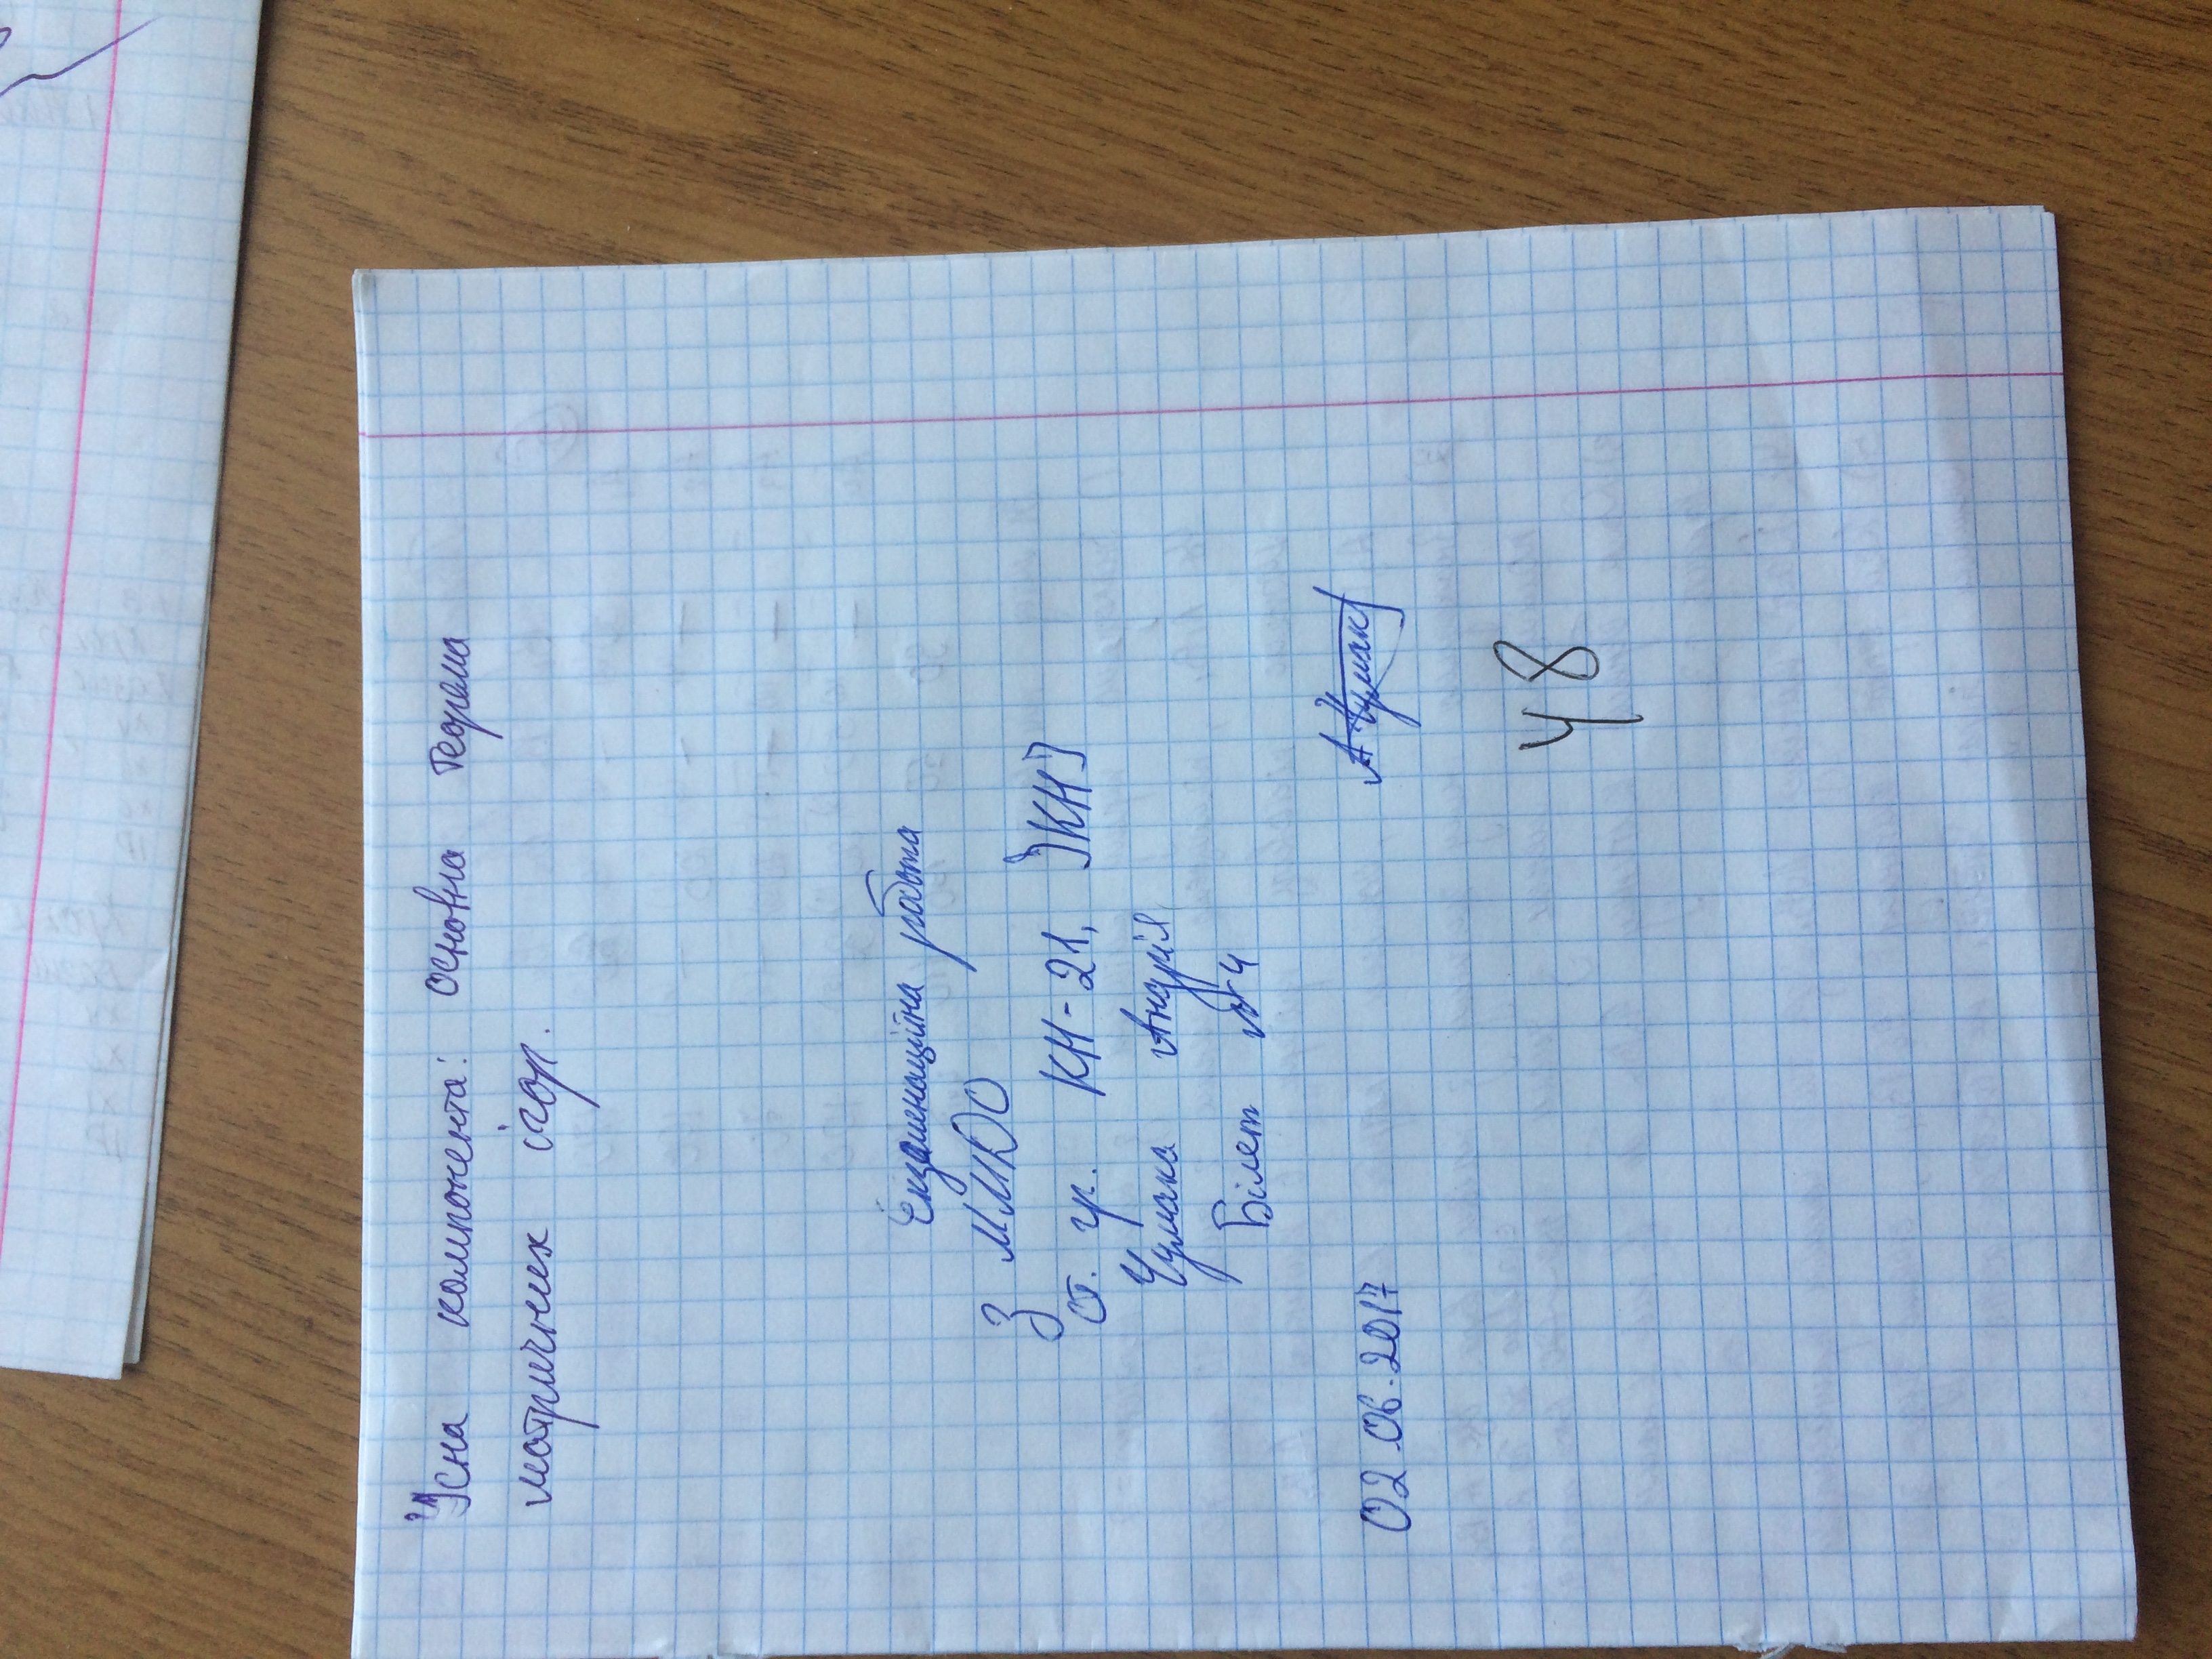 Усна компонента: основна теорема
матричних ігор.
Екзаменаційна робота
з ММДО
ст. гр. КН-21, ІКНІ
Чумака Андрія
Білет №4
02.06.2017 А Чумак
48